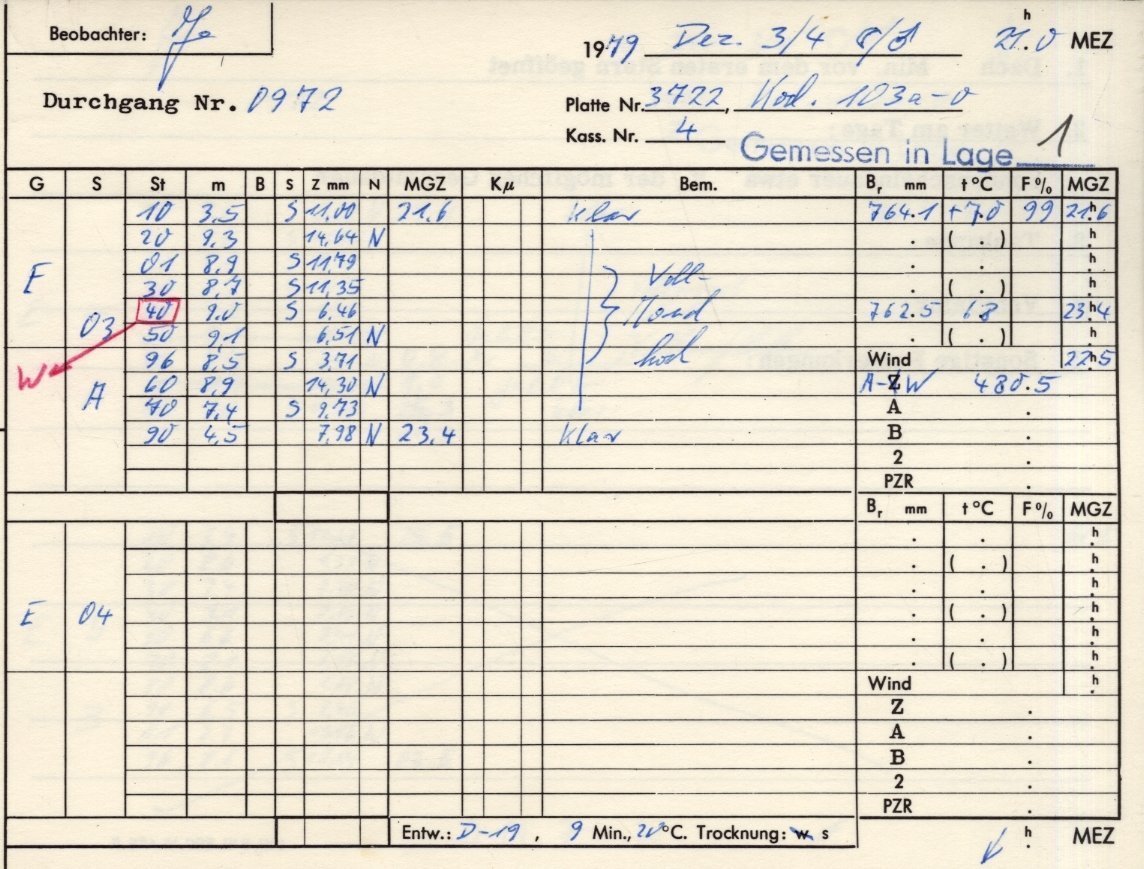 Beobachter:
1979 Dez. 3/4 21.h0 MEZ
Durchgang Nr. 0972
Platte Nr. 3722, Kod. 103a-0
Kass. Nr. 4
Gemessen in Lage 1
G S St m B S Z mm N MGZ Kμ Bem. Br mm t °C F % MGZ
10 3,5 S 11,00 21,6 klar 764.1 +7.0 99 21.h6
20 9,3 14,64 N . ( . ) h
01 8,9 S 11,79 . . h
E 30 8,7 S 11,35 Voll- . ( . ) h
40 9,0 S 6,46 Mond 762.5 6.8 23.h4
03 50 9,1 6,51 N . ( . ) h
We 96 8,5 S 3,71 hod Wind 22.h5
A 60 8,9 14,30 N A-Z W 480.5
70 7,4 S 9,73 A .
90 4,5 7,98 N 23,4 Klar B .
2 .
PZR .
Br mm t °C F % MGZ
. . h
. ( . ) h
. . h
E 04 . ( . ) h
. . h
. ( . ) h
Wind h
Z .
A .
B .
2 .
PZR .
Entw.: D-19, 9 Min., 20°C. Trocknung: w s
h MEZ